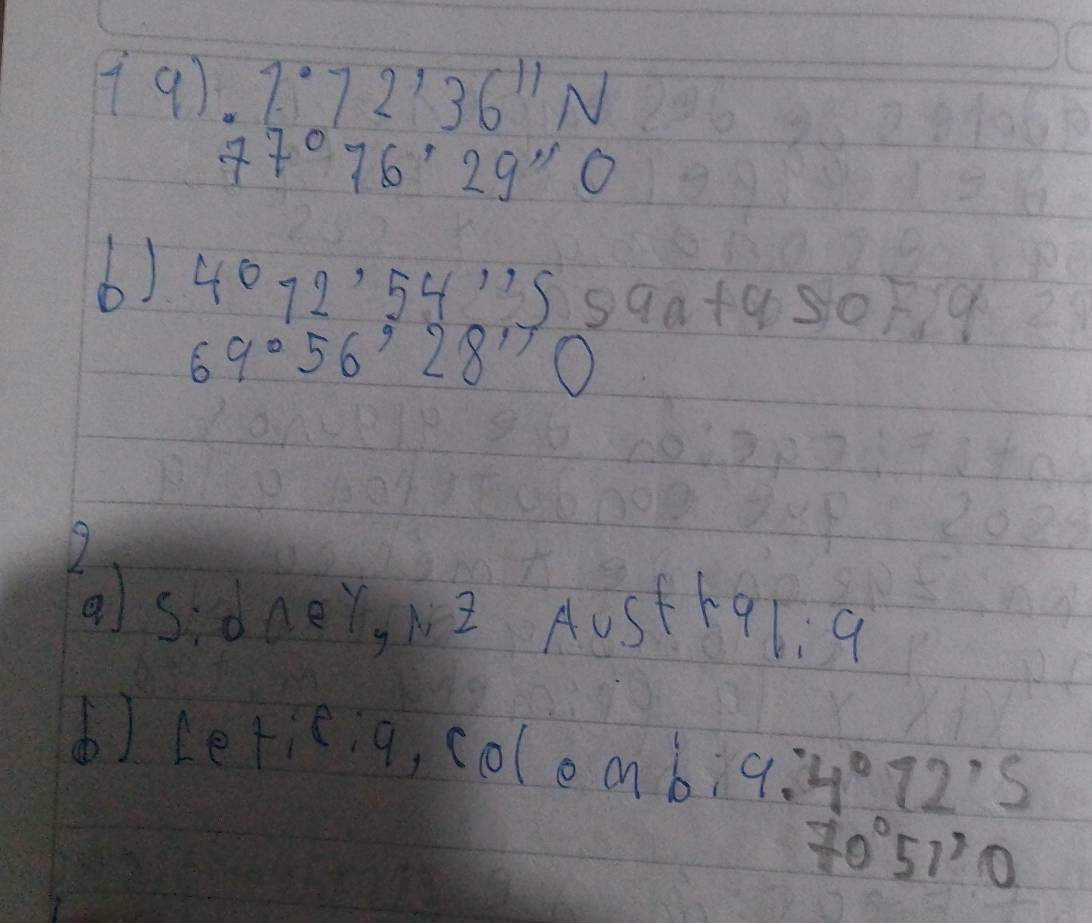 1 a). 1°12'36"N
77°16'29"O
b) 4°12'54''S santa sofia
69°56'28''O
2
a) Sidney, NZ Australia
b) Leticia, colombia: 4°12'S
70°51'O